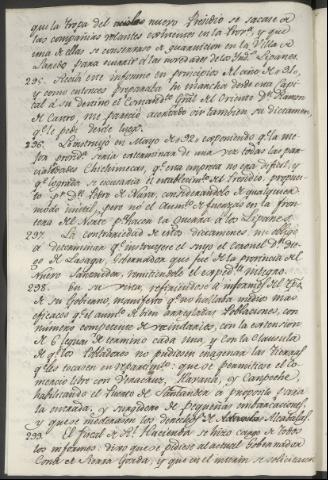 que la tropa del nuevo Presidio se sacase de
las compañias volantes existentes en la Prova, y que
una de ellas se conservase de guarnicion en la Villa de
Laredo para ocurrir á las novedades de los Yndios Lipanes.
235. Hizo este informe en principios del año de 92,
y como entonces preparaba su marcha desde esta Capi-
tal á su destino el Comandte Gral del Oriente Dn Ramon
de Castro, me pareció acertado oir tambien su dictamen,
qe le pedí desde luego.
236. Lo instruyó en Mayo de 92 exponiendo qe la me-
jor provida seria exterminar de una vez todas las par-
cialidades Chichimecas, qe esta empresa no era dificil, y
qe lograda se escusaria el establecimto del Presidio, propues-
to pr Dn Pedro de Nava, considerandolo de qualquier
modo inutil, pero no el aumto de fuerzas en la fron-
tera del Norte pa hacer la Guerra á los Lipanes.
237. La contrariedad de estos dictamenes me obligó
á determinar qe instruyese el suyo el Coronel Dn Die-
go de Lasaga, Gobernador que fué de la provincia del
Nuevo Santander, remitiendole el expedte integro.
238. En su vista, refiriendose á informes del
de su Gobierno, manifestó qe no hallaba medio mas
eficaces qe el aumto de bien arregladas Poblaciones, con
numero competente de vecindarios, con la extension
de 6 leguas de termino cada una, y con la Clausula
de qe los Pobladores no pudiesen enagenar las tierras
qe les tocasen en repartimto: que se permitiese el co-
mercio libre con Veracruz, Tlaxcala, y Campeche,
habilitando el Puerto de Santander á proposito para
la entrada, y surgidero de pequeñas embarcaciones,
y que se moderasen los derechos de Alcavalas.
239. El Fiscal de Rl Hacienda se hizo cargo de todos
los informes: dixo que se pidiese al actual Gobernador
Conde de Sierra Gorda, y que en el interin se solicitasen